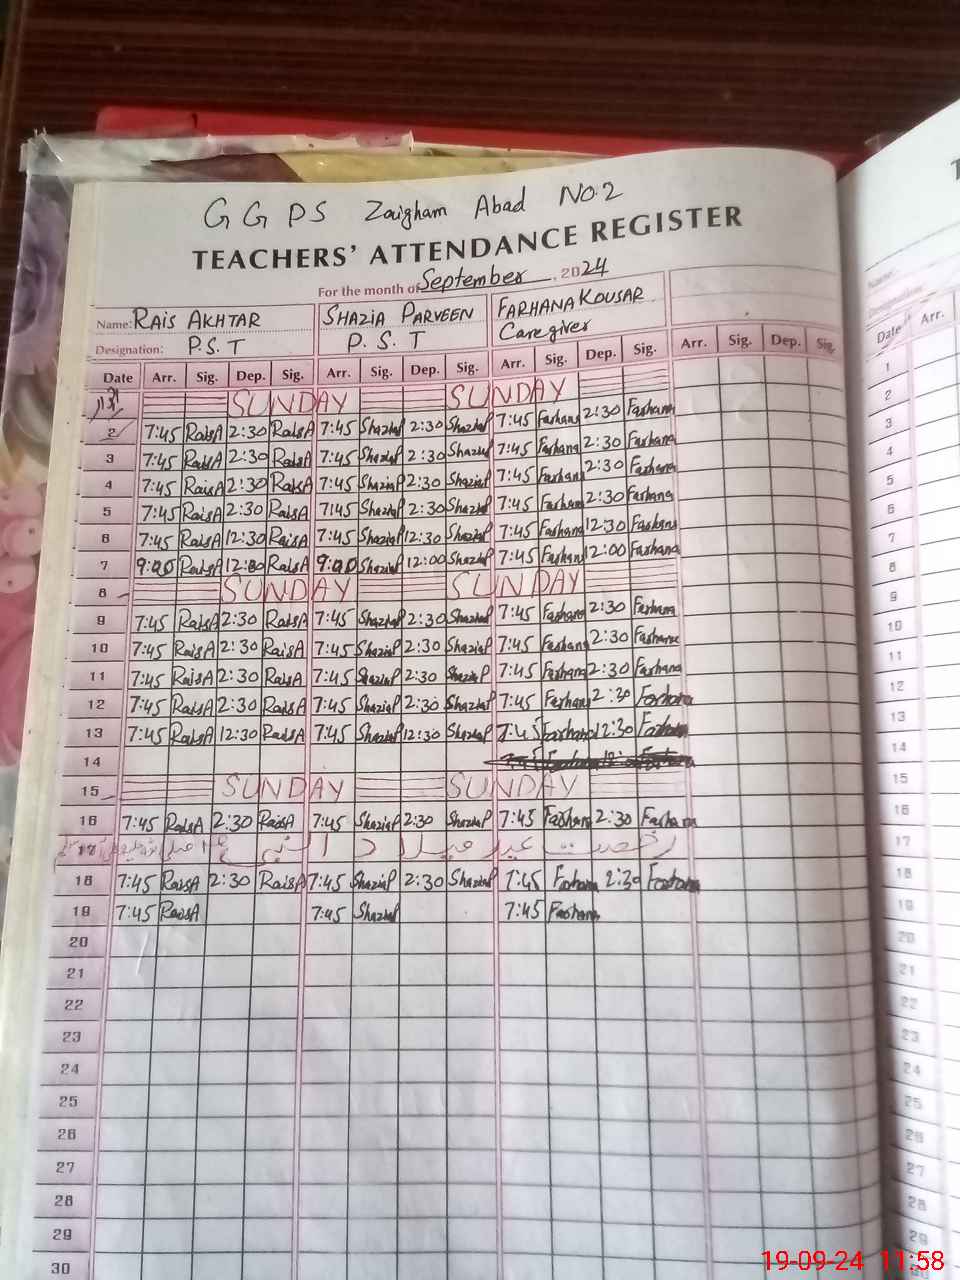 G G P S Zaigham Abad No.2
TEACHERS' ATTENDANCE REGISTER
For the month of September 2024
Name: RAIS AKHTAR SHAZIA PARVEEN FARHANA KOUSAR
Designation: P.S.T P.S.T Caregiver
Date Arr. Sig. Dep. Sig. Arr. Sig. Dep. Sig. Arr. Sig. Dep. Sig. Arr. Sig. Dep. Sig.
SUNDAY SUNDAY
2 7:45 RaisA 2:30 RaisA 7:45 ShaziaP 2:30 ShaziaP 7:45 Farhana 2:30 Farhana
3 7:45 RaisA 2:30 RaisA 7:45 ShaziaP 2:30 Shazia 7:45 Farhana 2:30 Farhana
4 7:45 RaisA 2:30 RaisA 7:45 ShaziaP 2:30 ShaziaP 7:45 Farhana 2:30 Farhana
5 7:45 RaisA 2:30 RaisA 7:45 ShaziaP 2:30 ShaziaP 7:45 Farhana 2:30 Farhana
6 7:45 RaisA 12:30 RaisA 7:45 ShaziaP 12:30 ShaziaP 7:45 Farhana 12:30 Farhana
7 9:00 RaisA 12:00 RaisA 9:00 ShaziaP 12:00 ShaziaP 7:45 Farhana 12:00 Farhana
8 SUNDAY SUNDAY
9 7:45 RaisA 2:30 RaisA 7:45 ShaziaP 2:30 ShaziaP 7:45 Farhana 2:30 Farhana
10 7:45 RaisA 2:30 RaisA 7:45 ShaziaP 2:30 ShaziaP 7:45 Farhana 2:30 Farhana
11 7:45 RaisA 2:30 RaisA 7:45 ShaziaP 2:30 ShaziaP 7:45 Farhana 2:30 Farhana
12 7:45 RaisA 2:30 RaisA 7:45 ShaziaP 2:30 ShaziaP 7:45 Farhana 2:30 Farhana
13 7:45 RaisA 12:30 RaisA 7:45 ShaziaP 12:30 ShaziaP 7:45 Farhana 12:30 Farhana
14
15 SUNDAY SUNDAY
16 7:45 RaisA 2:30 RaisA 7:45 ShaziaP 2:30 ShaziaP 7:45 Farhana 2:30 Farhana
17 رخصت عید میلاد النبی
18 7:45 RaisA 2:30 RaisA 7:45 ShaziaP 2:30 ShaziaP 7:45 Farhana 2:30 Farhana
19 7:45 RaisA 7:45 ShaziaP 7:45 Farhana
20
21
22
23
24
25
26
27
28
29
30
Name:
Date Arr.
1
2
3
4
5
6
7
8
9
10
11
12
13
14
15
16
17
18
19
20
21
22
23
24
25
26
27
28
29
19-09-24 11:58